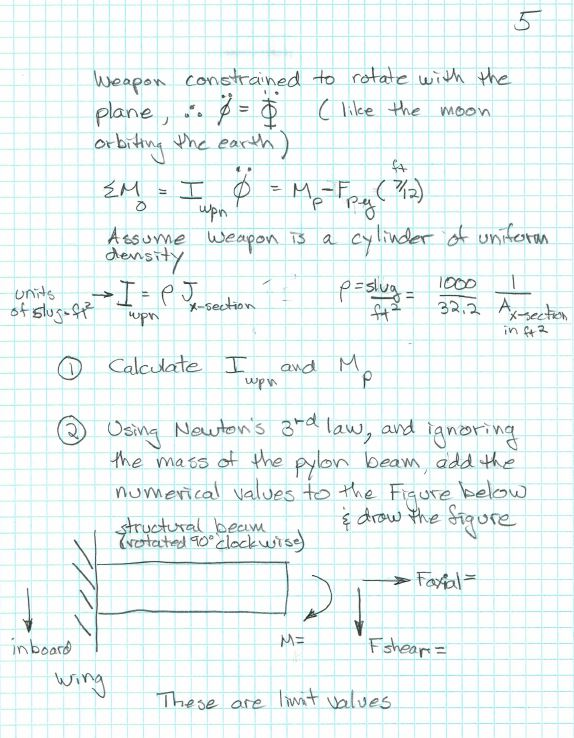 5
Weapon constrained to rotate with the
plane, ∴ φ̈ = Φ̈ (like the moon
orbiting the earth)
ΣM₀ = I_wpn φ̈ = M_p - F_p-y (7/12) ft
Assume weapon is a cylinder of uniform
density
units
of slug-ft² → I_wpn = ρ J_x-section ρ = slug/ft² = 1000/32.2 1/A_x-section
in ft2
① Calculate I_wpn and M_p
② Using Newton's 3rd law, and ignoring
the mass of the pylon beam, add the
numerical values to the Figure below
& draw the figure
structural beam
(rotated 90° clockwise)
Faxial =
M=
Fshear =
inboard
wing
These are limit values